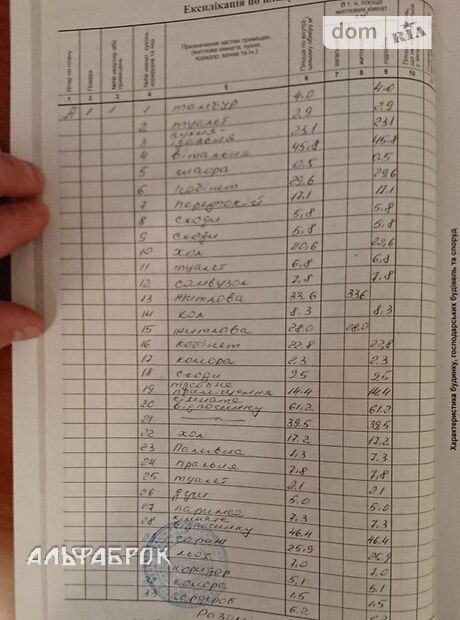 Експлікація по
dom RIA
Літер по плану
Поверх
Призначення частин приміщень
(житлова кімната, кухня,
коридор, ванна та ін.)
Площа по внутр.
В т. ч. площа
житлових кімнат
1 2 3 4 5 6 7 8 9 10
А 1 1 1 тамбур 4.0 4.0
2 туалет 2.9 2.9
3 кухня- їдальня 23.1 23.1
4 вітальня 45.8 45.8
5 шафа 0.5 0.5
6 кабінет 29.6 29.6
7 передпокій 17.1 17.1
8 сходи 5.8 5.8
9 сходи 5.8 5.8
10 хол 20,6
11 туалет 6.8 6.8
12 санвузол 7.8 7.8
13 житлова 33.6 33.6
14 хол 8.3 8.3
15 житлова 28.0 28.0
16 кабінет 22.8 22,8
17 комора 2.3 2.3
18 сходи 9.5 9.5
19 приміщення 14.4 14.4
20 кімната відпочинку 61.2 61.2
21 39.5 39.5
22 хол 17.2 17.2
23 Паливна 7.3
24 пральня 7.8 7.8
25 туалет 2.1 2.1
26 душ 5.0 5.0
27 парилка 7.3 7.3
28 кімната відпочинку 46.4 46.4
гараж 25.9
льох 7.0 7.0
коридор 5.1 5.1
32 комора 1.5 1.5
33 гардероб 6.2
АЛЬФАБРОК
Характеристика будинку, господарських будівель та споруд